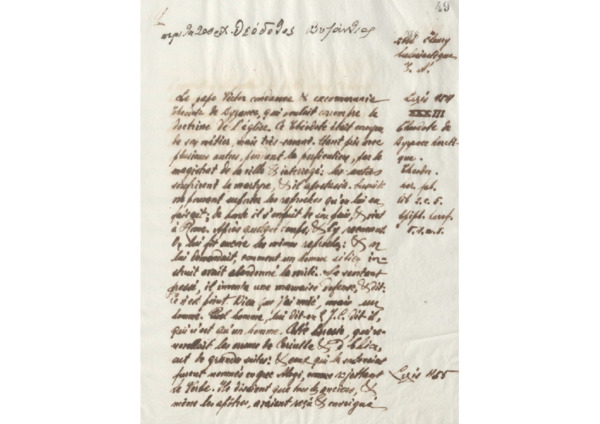 49
Θεόδοτος Βυζάντιος
Le pape Victor condamna & excommunia
Théodote de Byzance, qui voulait corrompre la
doctrine de l'église. Ce Théodote était
de son métier, mais très savant. Etant pris avec
plusieurs autres, pendant la persécution, par le
magistrat de la ville & interrogé: les autres
souffrirent le martyre, & il apostasia.
ne pouvant souffrir les reproches qu'on lui en
faisait; de honte il s'enfuit de ce païs, & vint
à Rome. Après quelque temps, il y fut reconnu
& lui fit encore les mêmes reproches: & on
lui demandait, comment un homme si bien in-
struit avait abandonné la vérité. Se sentant
pressé, il inventa une mauvaise défense, & dit:
Ce n'est point Dieu que j'ai nié, mais un
homme. Quel homme, lui dit-on? J.C. dit-il,
qui n'est qu'un homme. Cette hérésie, qui re-
nouvellait les erreurs de Cerinthe & d'Ebion,
eut de grandes suites: & ceux qui la
furent nommés en grec Alogi, comme rejettant
le Verbe. Ils disaient que tous les anciens, &
même les apôtres, avaient reçu & enseigné
XXXIII
Théodote de
Byzance héréti-
que.